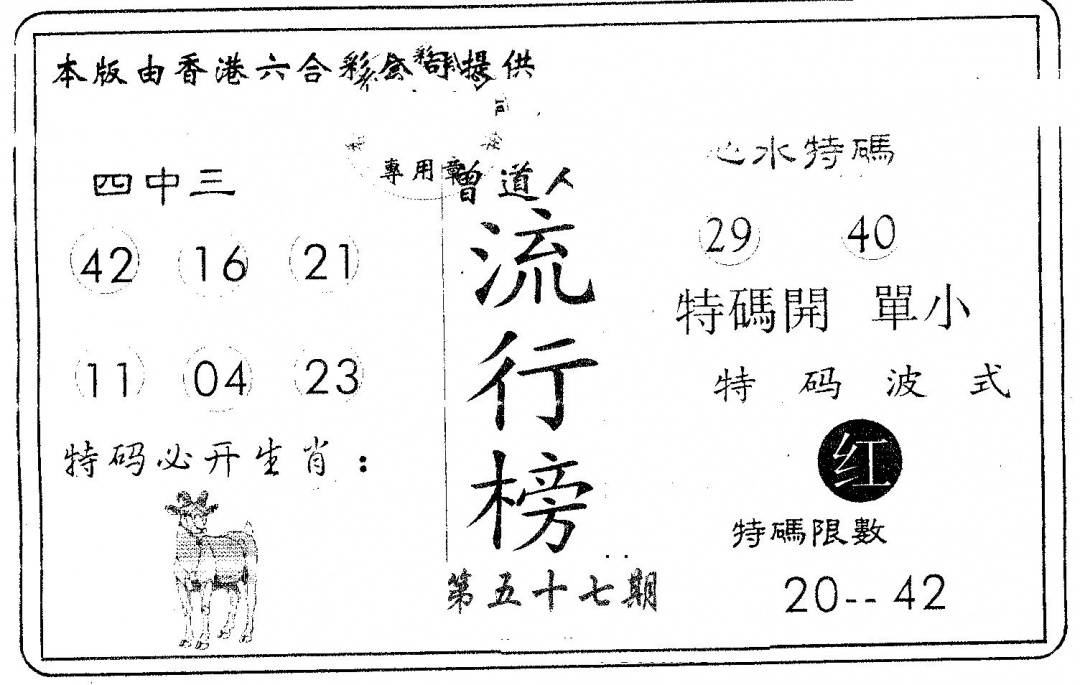 本版由香港六合彩公司提供
專用章
曾道人
流行榜
第五十七期
四中三
42 16 21
11 04 23
特码必开生肖：
心水特碼
29 40
特碼開 單小
特码波式
红
特碼限數
20-- 42